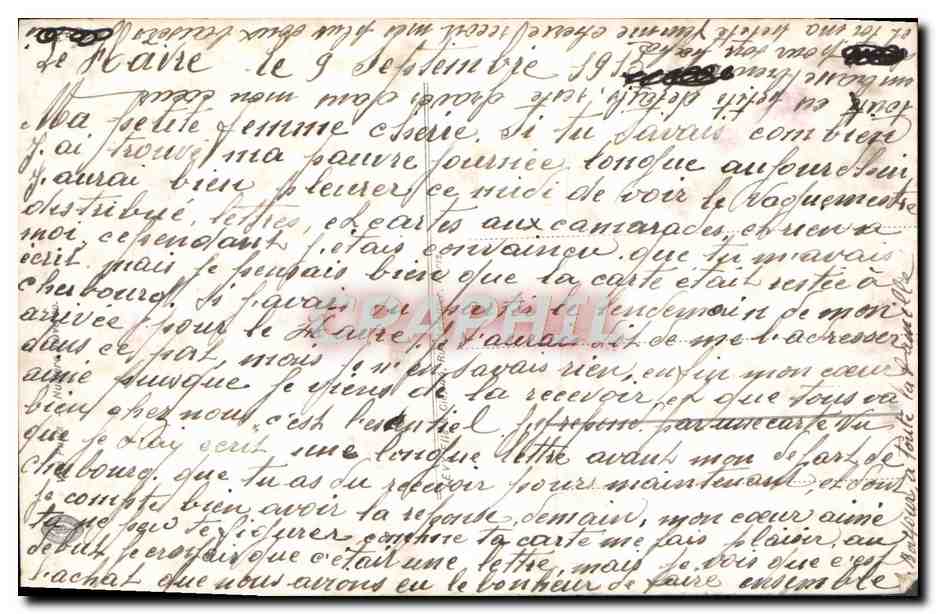 Le Havre le 9 Septembre 1915
Ma petite femme chérie, si tu savais combien
j'ai trouvé ma pauvre journée longue aujourd'hui
j'aurai bien pleurer, ce midi de voir le Vaguemestre
distribué, lettres, et cartes aux camarades, et rien a
moi, cependant j'étais convaincu que tu m'avais
écrit mais je pensais bien que la carte était restée à
cherbourg. Si j'avais su partir le lendemain de mon
arrivée pour le Havre je t'aurai dit de me l'adresser
dans ce port, mais je n'en savais rien, enfin mon cœur
aimé puisque je viens de la recevoir et que tous va
bien chez nous c'est l'esentiel. par une carte vu
que je t'ai écrit une longue lettre avant mon depart de
cherbourg que tu as du recevoir pour maintenant, et dont
je compte bien avoir la reponse demain, mon cœur aimé
tu ne peu te figurer comme ta carte me fais plaisir, au
debut je croyais que c'était une lettre, mais je vois que c'est
l'achat que nous avons eu le bonheur de faire ensemble
Bonjour a toute la famille
tout en petits détails, reste gravé dans mon cœur
et toi ma petite femme chérie reçoit mes plus doux baisers
CPAPHIL